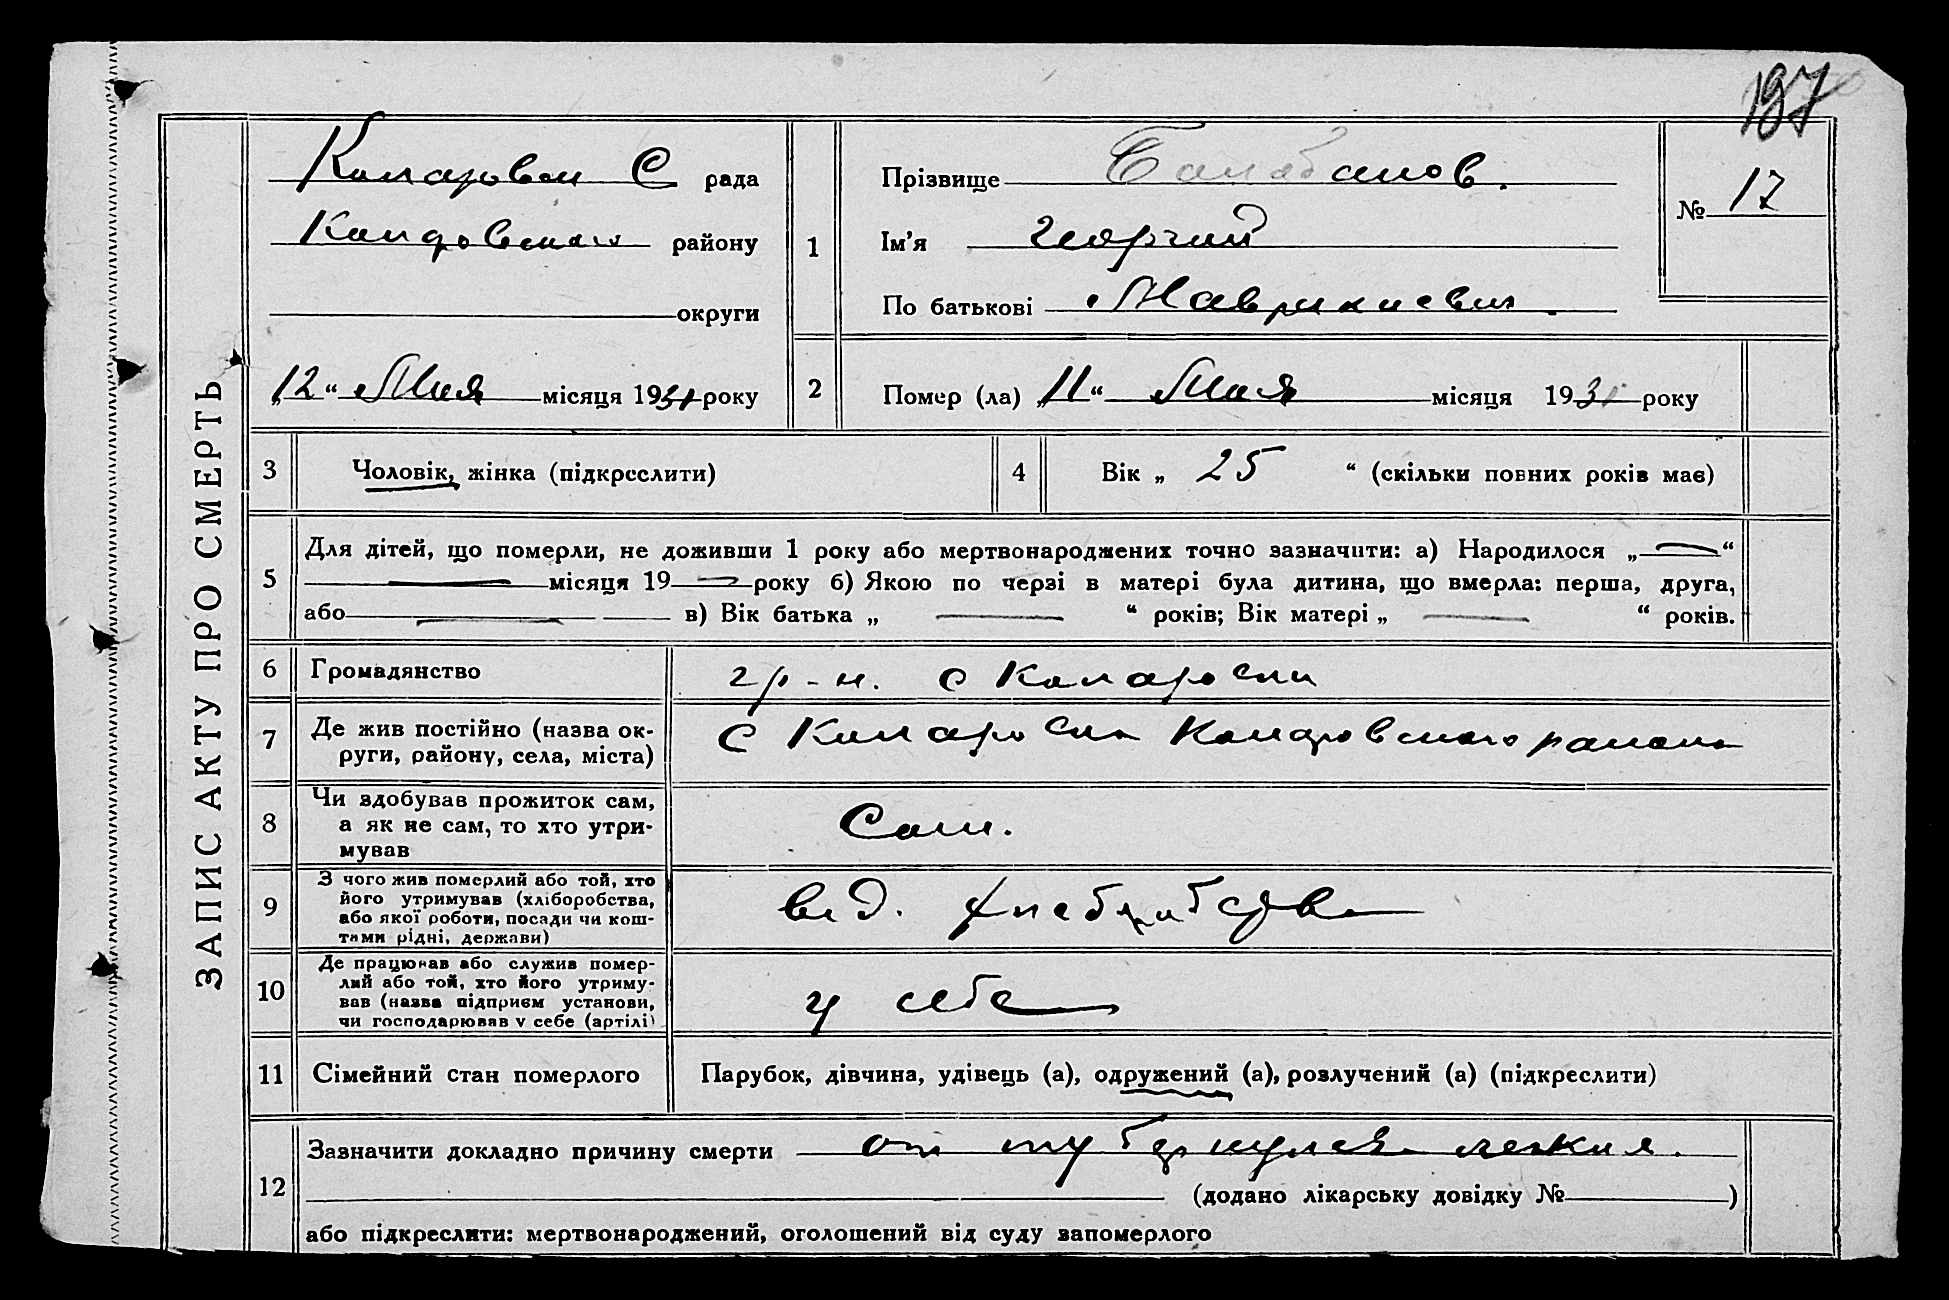 197
ЗАПИС АКТУ ПРО СМЕРТЬ
С рада
району
округи
„12“ Мая місяця 1931 року
1
Прізвище Балабанов.
Ім’я Георгий
По батькові Маврикиевич.
№ 17
2
Помер (ла) „11“ Мая місяця 1931 року
3 Чоловік, жінка (підкреслити)
4 Вік „ 25 “ (скільки повних років має)
5
Для дітей, що померли, не доживши 1 року або мертвонароджених точно зазначити: а) Народилося „—“
— місяця 19— року б) Якою по черзі в матері була дитина, що вмерла: перша, друга,
або — в) Вік батька „ — “ років; Вік матері „ — “ років.
6 Громадянство гр-н. с
7
Де жив постійно (назва ок-
руги, району, села, міста)
с района
8
Чи здобував прожиток сам,
а як не сам, то хто утри-
мував
Сам.
9
З чого жив померлий або той, хто
його утримував (хліборобства,
або якої роботи, посади чи кош-
тами рідні, держави)
від.
10
Де працював або служив помер-
лий або той, хто його утриму-
вав (назва підприєм установи,
чи господарював у себе (артілі)
у себе
11 Сімейний стан померлого Парубок, дівчина, удівець (а), одружений (а), розлучений (а) (підкреслити)
12
Зазначити докладно причину смерти от туберкулеза легких.
(додано лікарську довідку № )
або підкреслити: мертвонароджений, оголошений від суду запомерлого